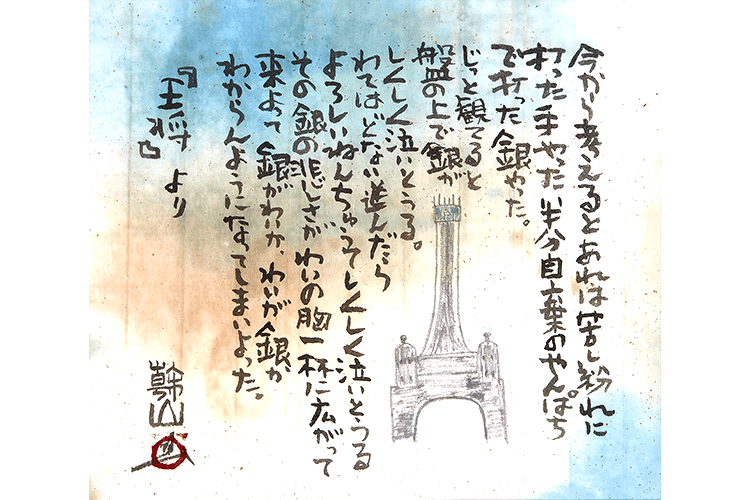 今から考えるとあれは苦し紛れに
打った手やった半分自棄のやんぱち
で打った銀やった。
じっと観てると
盤の上で銀が
しくしく泣いとうる。
わてはどない進んだら
よろしいねんちゅうてしくしく泣いとうる
その銀の悲しさがわいの胸一杯に広がって
来よって銀がわいか、わいが銀か
わからんようになってしまいよった。
『王将』より
乾山